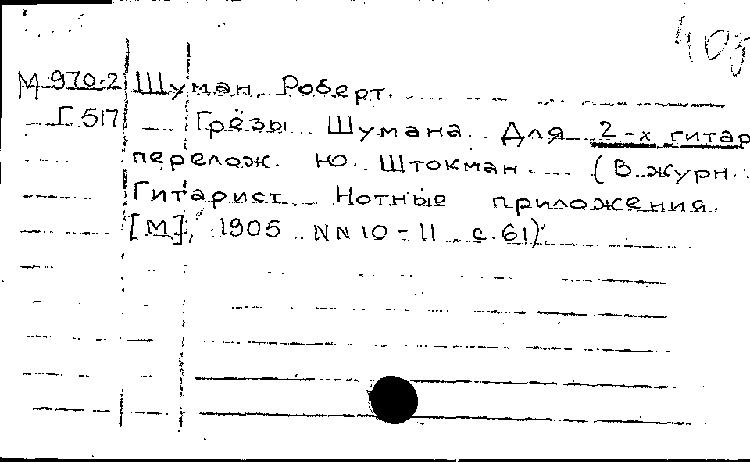 405
М 970-2 Шуман, Роберт.
Г 517 Грёзы Шумана. Для 2-х гитар
перелож. Ю. Штокман. (В журн.:
Гитарист. Нотные приложения.
[М], 1905 NN 10-11 с. 61)